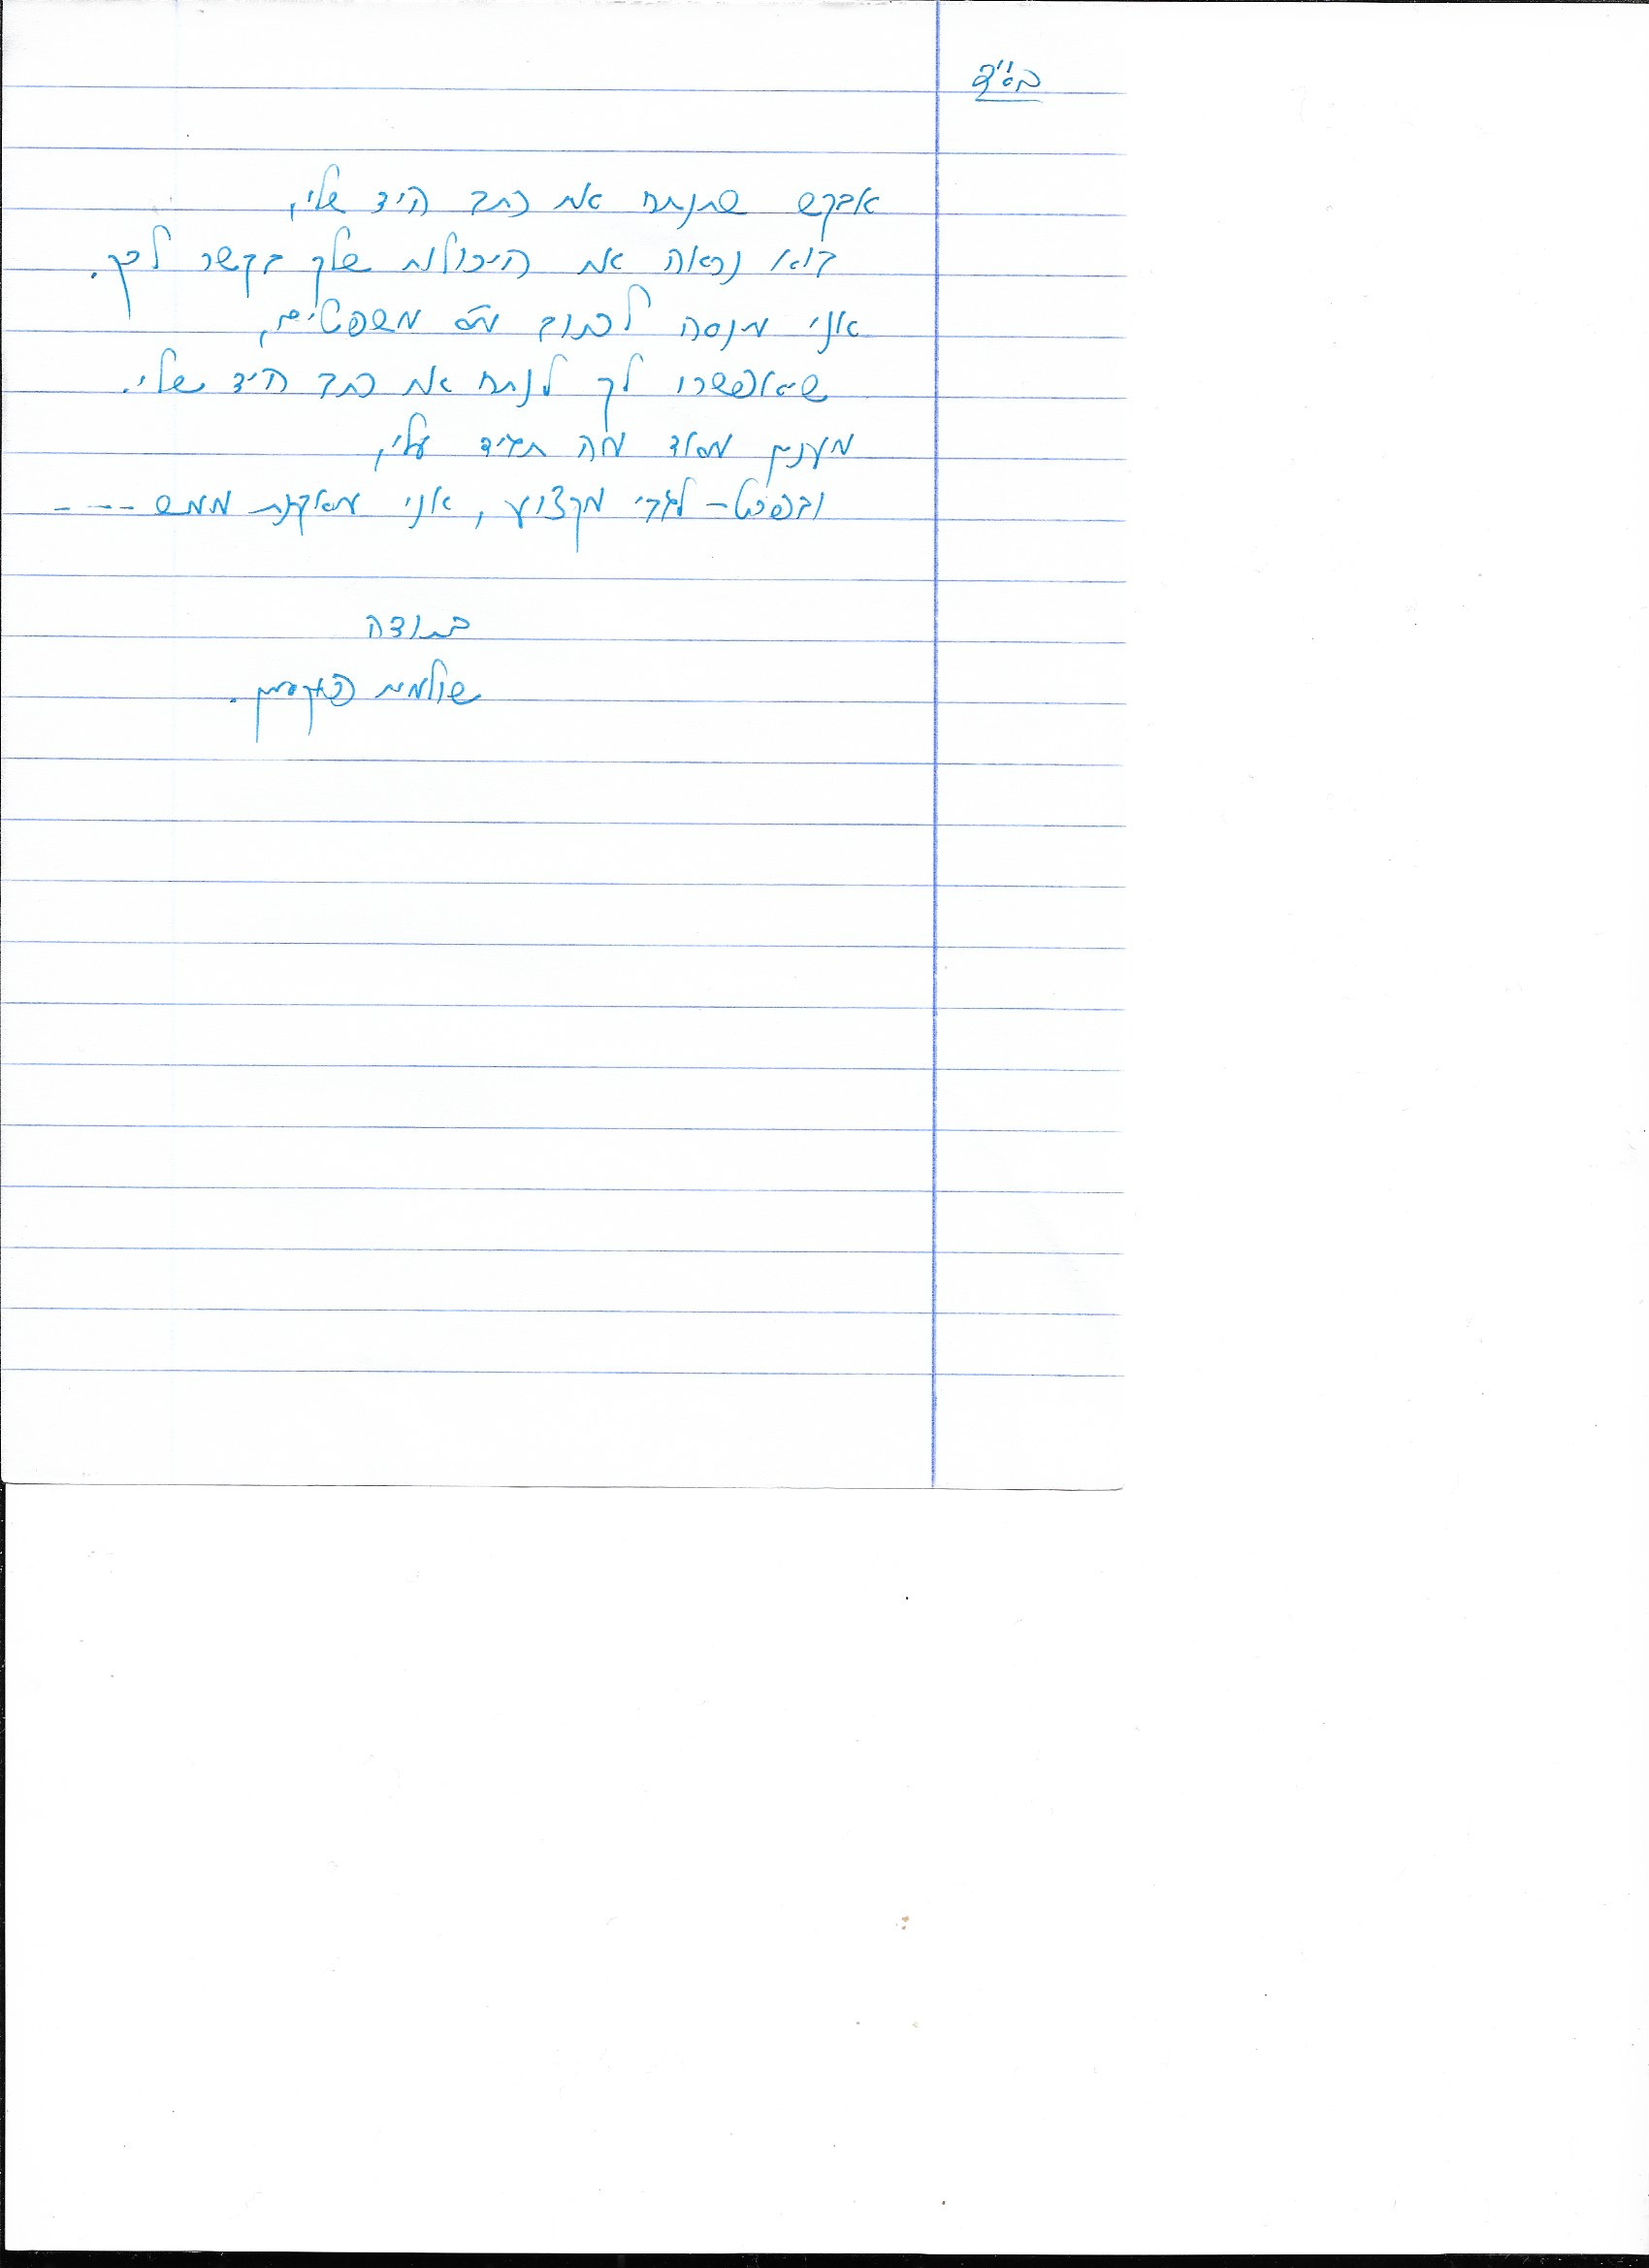 בס"ד
אבקש שתנתח את כתב היד שלי,
בוא נראה את היכולת שלך בקשר לכך.
אני מנסה לכתוב מס משפטים,
שיאפשרו לך לנתח את כתב היד שלי.
מענין מאוד מה תגיד עלי,
ובפרט - לגבי מקצוע, אני מאקנת ממש ----
בתודה
שולמית